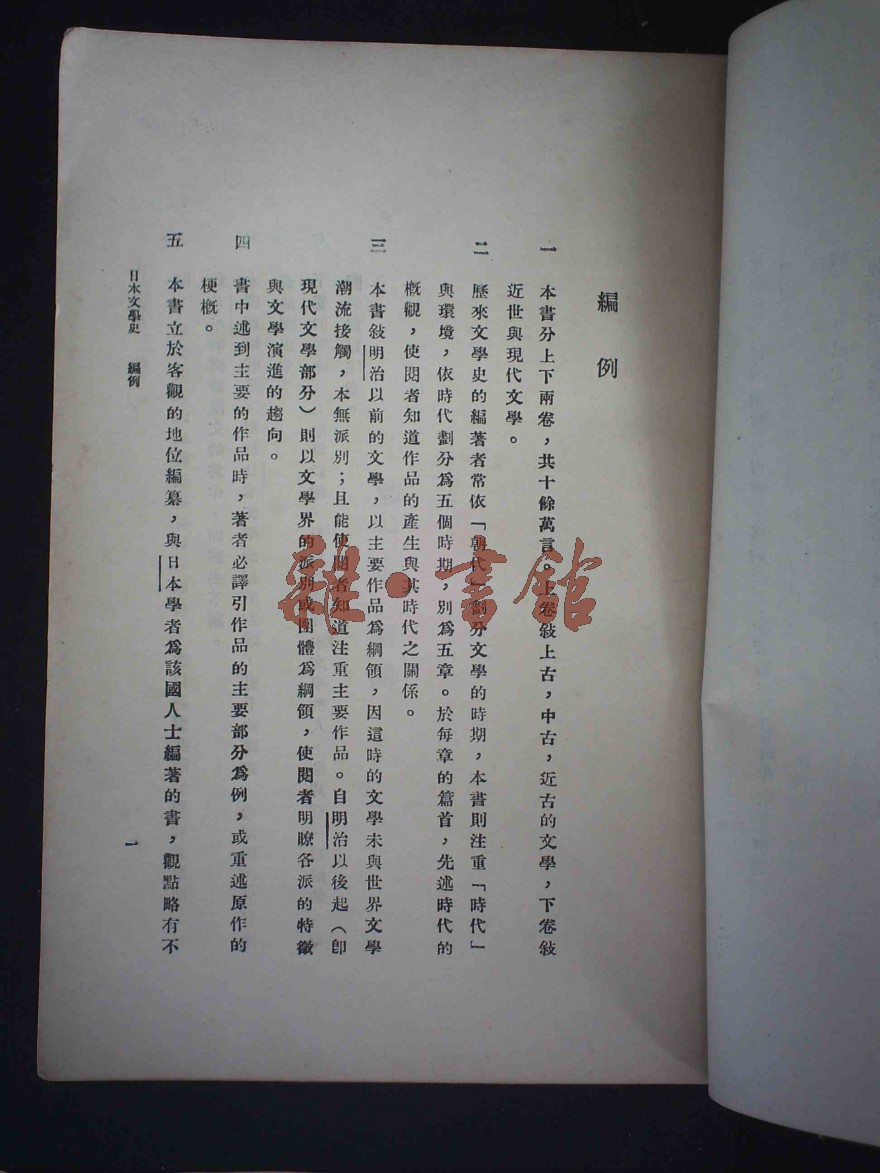 編例
一 本書分上下兩卷，共十餘萬言。上卷敍上古，中古，近古的文學，下卷敍
近世與現代文學。
二 歷來文學史的編著者常依「朝代」劃分文學的時期，本書則注重「時代」
與環境，依時代劃分爲五個時期，別爲五章。於每章的篇首，先述時代的
概觀，使閱者知道作品的產生與其時代之關係。
三 本書敍明治以前的文學，以主要作品爲綱領，因這時的文學未與世界文學
潮流接觸，本無派別；且能使閱者知道注重主要作品。自明治以後起（卽
現代文學部分）則以文學界的派別或團體爲綱領，使閱者明瞭各派的特徵
與文學演進的趨向。
四 書中述到主要的作品時，著者必譯引作品的主要部分爲例，或重述原作的
梗概。
五 本書立於客觀的地位編纂，與日本學者爲該國人士編著的書，觀點略有不
日本文學史 編例
一
雜·書館